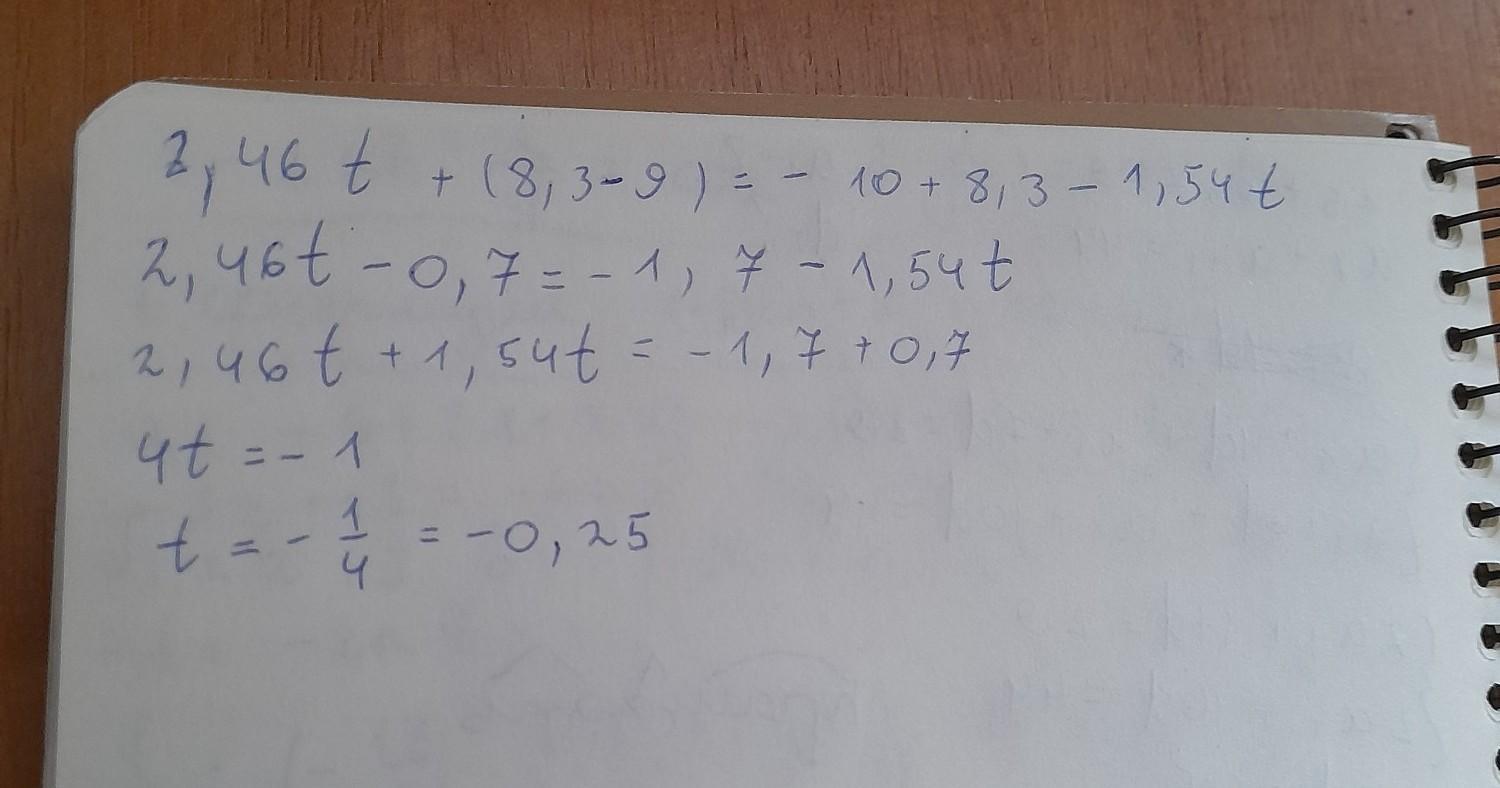 2,46t + (8,3-9) = - 10 + 8,3 - 1,54t
2,46t - 0,7 = - 1,7 - 1,54t
2,46t + 1,54t = - 1,7 + 0,7
4t = - 1
t = - 1/4 = - 0,25